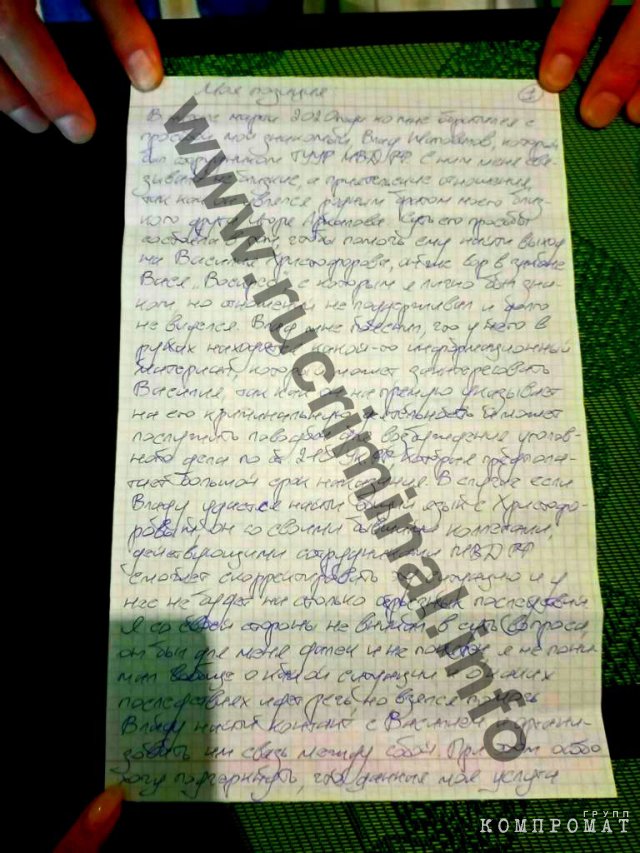 Моя позиция: 1
В марте 2020 года ко мне обратился с
просьбой мой знакомый, Влад, который
был сотрудником ГУУР МВД РФ. С ним меня свя-
не близкие, а приятельские отношения,
так как является родным братом моего близ-
кого друга Игоря. Суть его просьбы
состояла в том, чтобы помочь ему найти выход
на Василия Христофорова, вор в законе
Вася "Воскрес", с которым я лично был зна-
ком, но отношений не поддерживал и долго
не виделся. Влад мне пояснил, что у него в
руках находится какой-то информационный
материал, который может заинтересовать
Василия, так как он напрямую указывает
на его криминальную деятельность и может
послужить поводом для возбуждения уголов-
ного дела по ст. 210 УК РФ, которая предпола-
гает большой срок наказания. В случае если
Владу удастся найти общий язык с Христофо-
ровым он со своими бывшими коллегами,
действующими сотрудниками МВД РФ
сможет скорректировать и у
него не будет столько серьезных последствий
Я со своей стороны не вникал в суть вопроса,
он был для меня далек и не понятен, я не пони-
мал вообще о какой ситуации и о каких
последствиях идет речь, но взялся помочь
Владу найти контакт с Василием и органи-
зовать им связь между собой. При этом особо
хочу подчеркнуть, что данные мои услуги
www.rucriminal.info
ГРУПП
КОМПРОМАТ